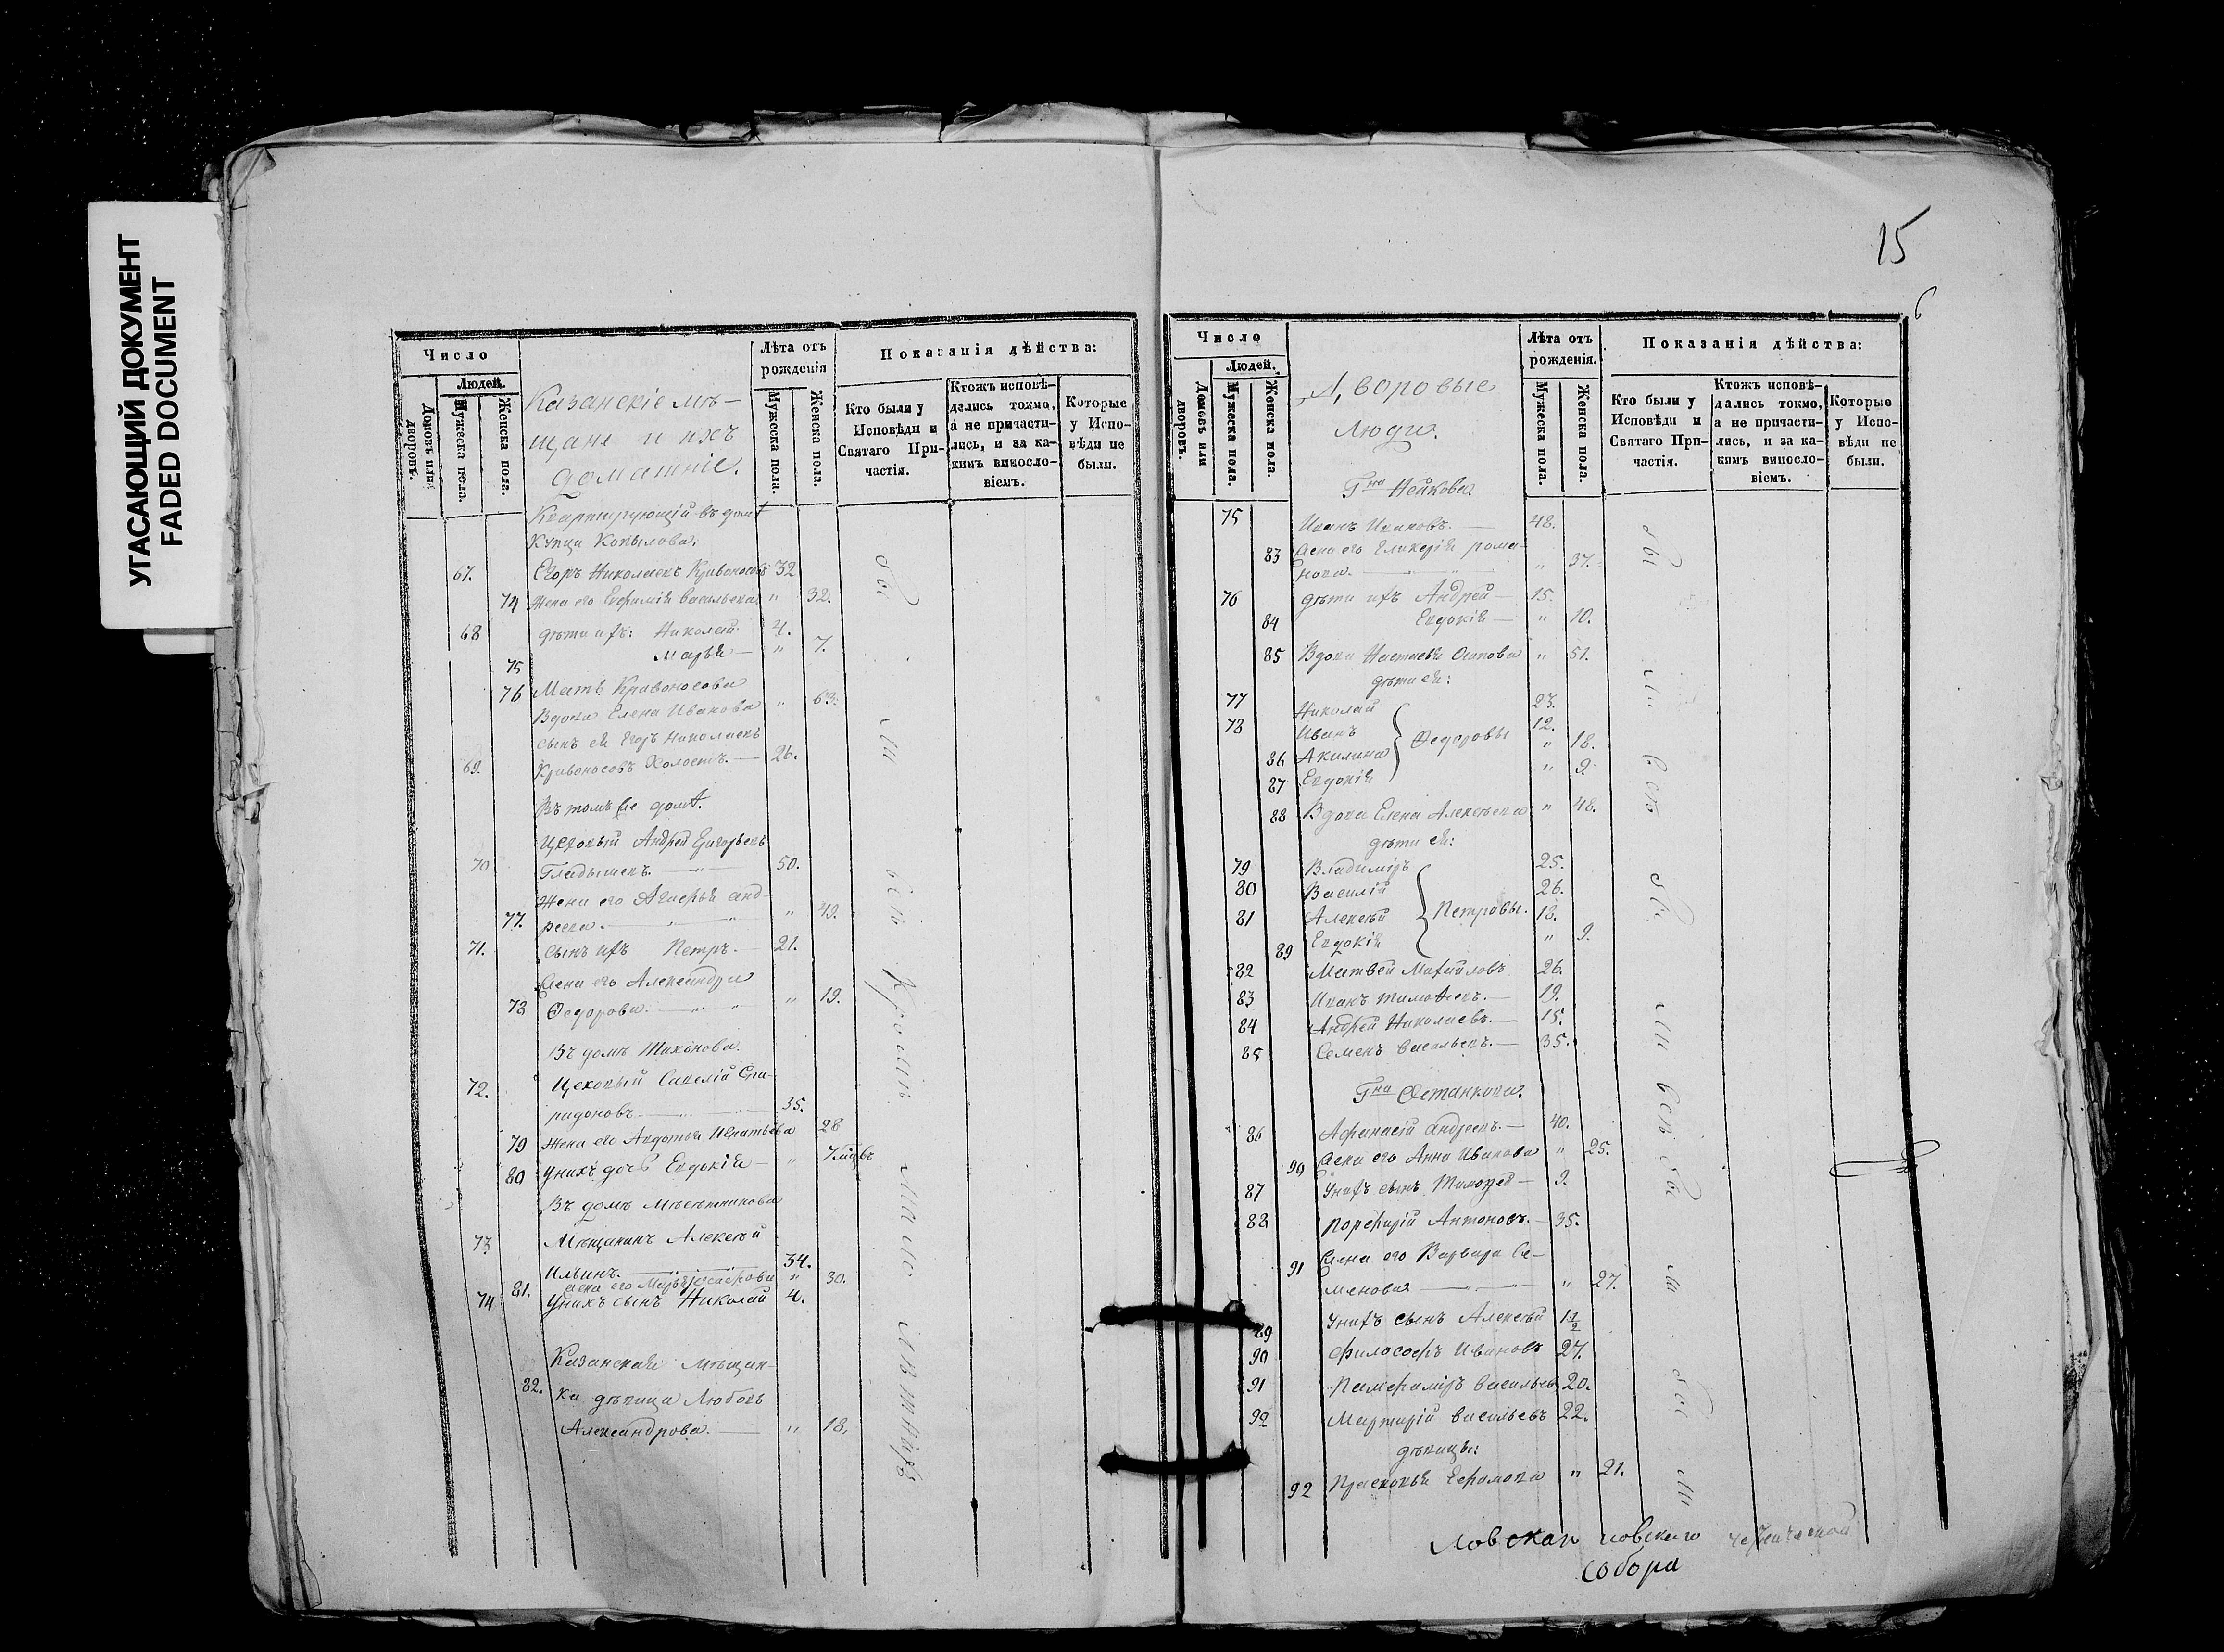 УГАСАЮЩИЙ ДОКУМЕНТ
FADED DOCUMENT
Число
Людей.
Домовъ или дворовъ.
Мужеска пола.
Женска пола.
Казанскіе мѣ-
щане и ихъ
домашніе.
Лѣта отъ
рожденія
Мужеска пола.
Женска пола.
Показанія дѣйства:
Кто были у
Исповѣди и
Святаго При-
частія.
Ктожъ исповѣ-
дались токмо,
а не причасти-
лись, и за ка-
кимъ винosло-
віемъ.
Которые
у Испо-
вѣди не
были.
Квартирующій въ домѣ
Купца Копылова:
67. Егоръ Николаевъ Кривоносовъ 32
74 Жена его Евфимія Васильева " 32.
68 дѣти ихъ: Николай 4.
75 Марья — " 7.
76 Мать Кривоносова
Вдова Елена Иванова " 63.
сынъ ея Егоръ Николаевъ
69. Кривоносовъ Холостъ. — 26.
Въ томъ же домѣ.
Цеховый Андрей Григорьевъ
70 Гладышевъ. — " 50.
Жена его Агафья Анд-
77. реева. — " — " 49.
71. сынъ ихъ Петръ. — 21.
Жена его Александра
78 Ѳедорова. — " — " 19.
Въ домѣ Тихонова.
72. Цеховый Савелій Спи-
ридоновъ — 35.
79 Жена его Авдотья Игнатьева 28
80 у нихъ дочь Евдокія — "
Въ домѣ Мѣсятникова
73 Мѣщанинъ Алексѣй
Ильинъ. — 34.
81. жена его Марья " 30.
74 у нихъ сынъ Николай 4.
Казанская мѣщан-
82. ка дѣвица Любовь
Александрова. — " 18.
бы ли всѣ
15
6
Число
Людей.
Домовъ или дворовъ.
Мужеска пола.
Женска пола.
Дворовые
Люди.
Лѣта отъ
рожденія.
Мужеска пола.
Женска пола.
Показанія дѣйства:
Кто были у
Исповѣди и
Святаго При-
частія.
Ктожъ исповѣ-
дались токмо,
а не причасти-
лись, и за ка-
кимъ винosло-
віемъ.
Которые
у Испо-
вѣди не
были.
Гна Нейкова.
75 Иванъ Ивановъ. — 48.
83 Жена его Гликерія рома-
нова. — " — " 37.
76 дѣти ихъ Андрей — 15.
84 Евдокія — " 10.
85 Вдова Настасья Осипова " 51.
дѣти ея:
77 Николай 23.
78 Иванъ Ѳедоровы 12.
86 Акилина " 18.
87 Евдокія " 9.
88 Вдова Елена Алексѣева " 48.
дѣти ея:
79 Владиміръ 25.
80 Василій 26.
81 Алексѣй Петровы. 18.
89 Евдокія " 9.
82 Матвей Михайловъ 26.
83 Иванъ Тимоѳеевъ. — 19.
84 Андрей Николаевъ. — 15.
85 Семенъ Васильевъ. — 35.
Гна Останкова.
86 Афанасій Андреевъ. — 40.
90 Жена его Анна Иванова " 25.
87 У нихъ сынъ Тимофей — 9.
88 Порфирій Антоновъ. — 35.
91 Жена его Варвара Се-
менова — " 27.
89 У нихъ сынъ Алексѣй 1 1/2
90 Философъ Ивановъ 27.
91 Памфамиръ Васильевъ 20.
92 Мартирій Васильевъ 22.
дѣвицы:
92 Прасковья Ефимова " 21.
бы ли всѣ бы ли всѣ бы ли бы ли
собора